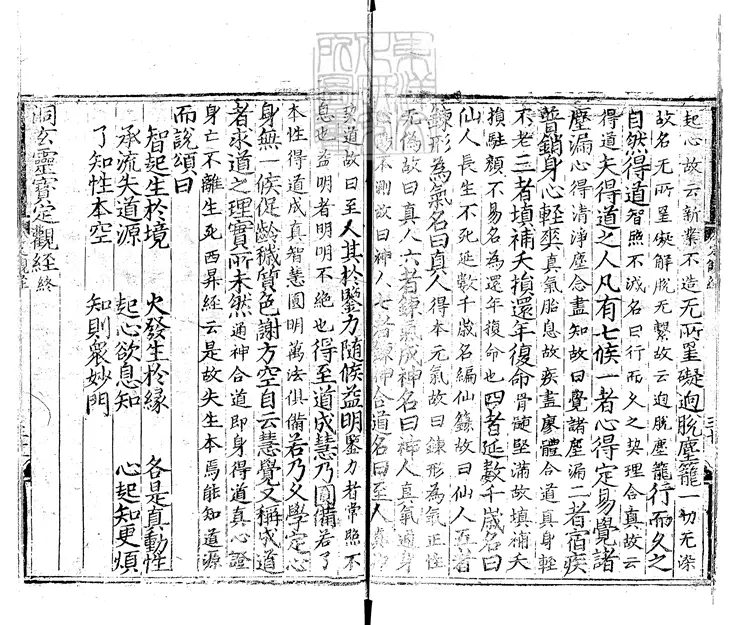 起心故云新業不造无所罣礙迴脫塵籠一切无染
故名无所罣礙解脫无繫故云迴脫塵籠行而久之
自然得道智照不滅名曰行而久之契理合真故云
得道夫得道之人凡有七候一者心得定易覺諸
塵漏心得清淨塵念盡知故曰覺諸塵漏二者宿疾
普銷身心輕爽真氣胎息故疾盡廖體合道真身輕
不老三者填補夭損還年復命骨髓堅滿故填補夭
損駐顏不易名為還年復命也四者延數千歲名曰
仙人長生不死延數千歲名編仙籙故曰仙人五者
鍊形為氣名曰真人得本元氣故曰鍊形為氣正性
无偽故曰真人六者鍊氣成神名曰神人真氣通身
不測故曰神人七者鍊神合道名曰至人真
契道故曰至人其於鑒力隨候益明鑒力者常照不
息也益明者明明不絶也得至道成慧乃圓備若了
本性得道成真智慧圓明萬法俱備若乃久學定心
身無一候促齡穢質色謝方空自云慧覺又稱成道
者求道之理實所未然通神合道即身得道真心證
身亡不離生死西昇經云是故失生本焉能知道源
而說頌曰
智起生於境 火發生於緣 各是真動性
承流失道源 起心欲息知 心起知更煩
了知性本空 知則衆妙門
洞玄靈寶定觀經終